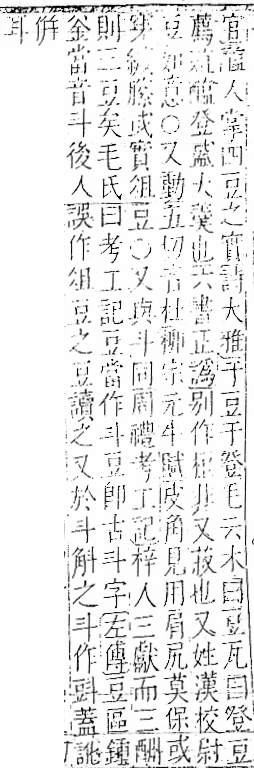 官醢人掌四豆之實詩大雅于豆于登毛云木曰豆瓦曰登豆
薦菹醢登盛大羹也六書正譌別作梪非又菽也又姓漢校尉
豆如意○又動五切音杜柳宗元牛賦皮角見用肩尻莫保或
穿緘縢或實俎豆○又與斗同周禮考工記梓人三獻而三酬
則一豆矣毛氏曰考工記豆當作斗豆卽古斗字左傳豆區鍾
釜當音斗後人誤作俎豆之豆讀之又於斗斛之斗作㪷蓋訛
倂斗